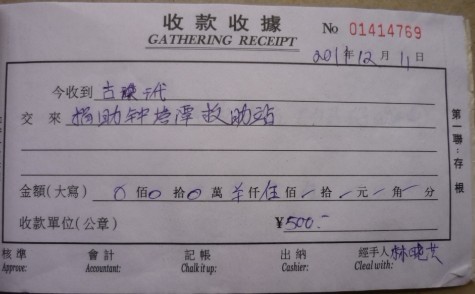 收款收據
GATHERING RECEIPT
No 01414769
2011年12月11日
今收到
交來 捐助钟培潭救助站
金額(大寫) 0佰0拾0萬 仟伍佰 拾 元 角 分
收款單位(公章) ¥500.-
核準 會計 記帳 出納 經手人 林晓
Approve: Accountant: Chalk it up: Cashier: Cleal with:
第一聯:存根